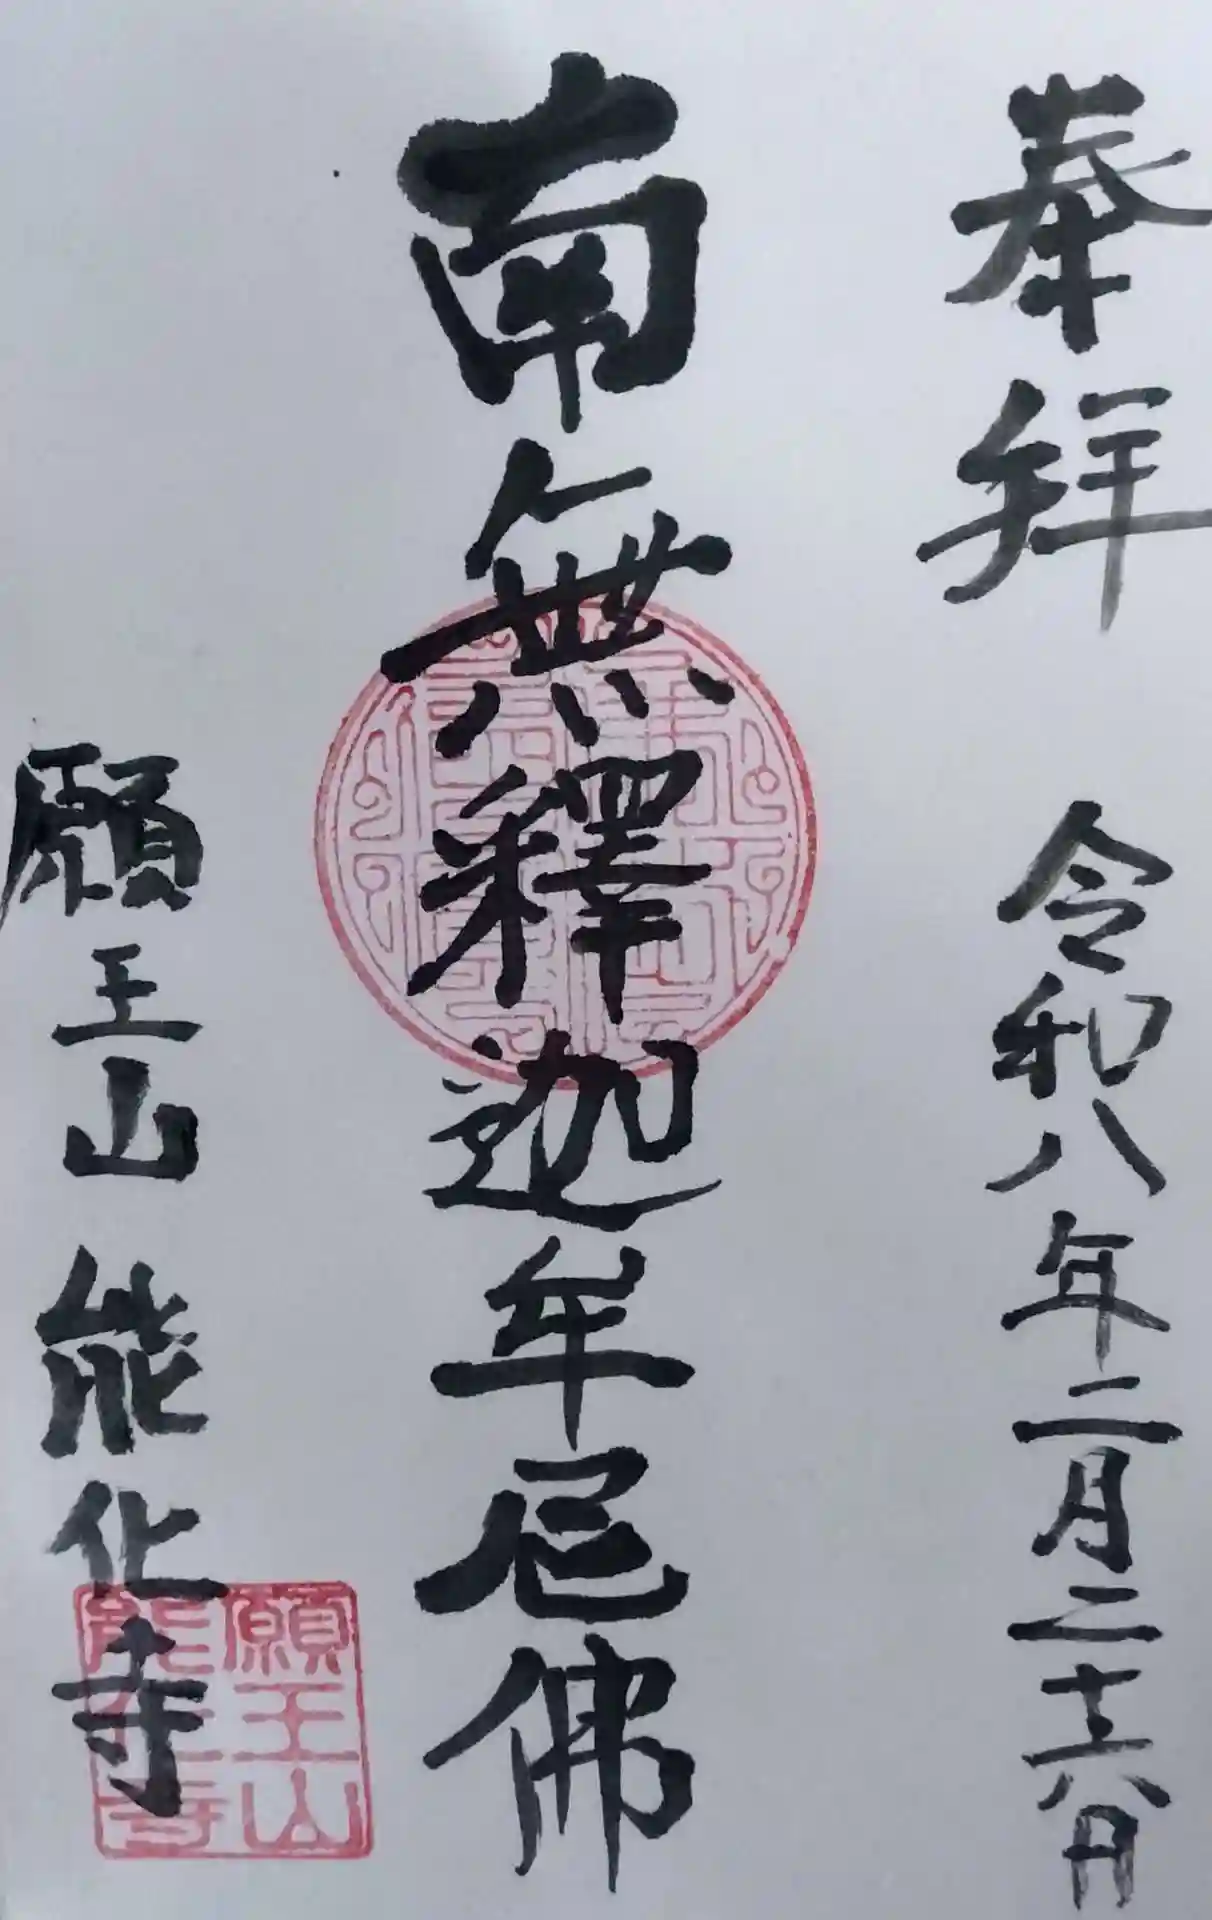 奉拜 令和八年二月二十六日
南無釋迦牟尼佛
願王山 能化寺
願王山
能化寺